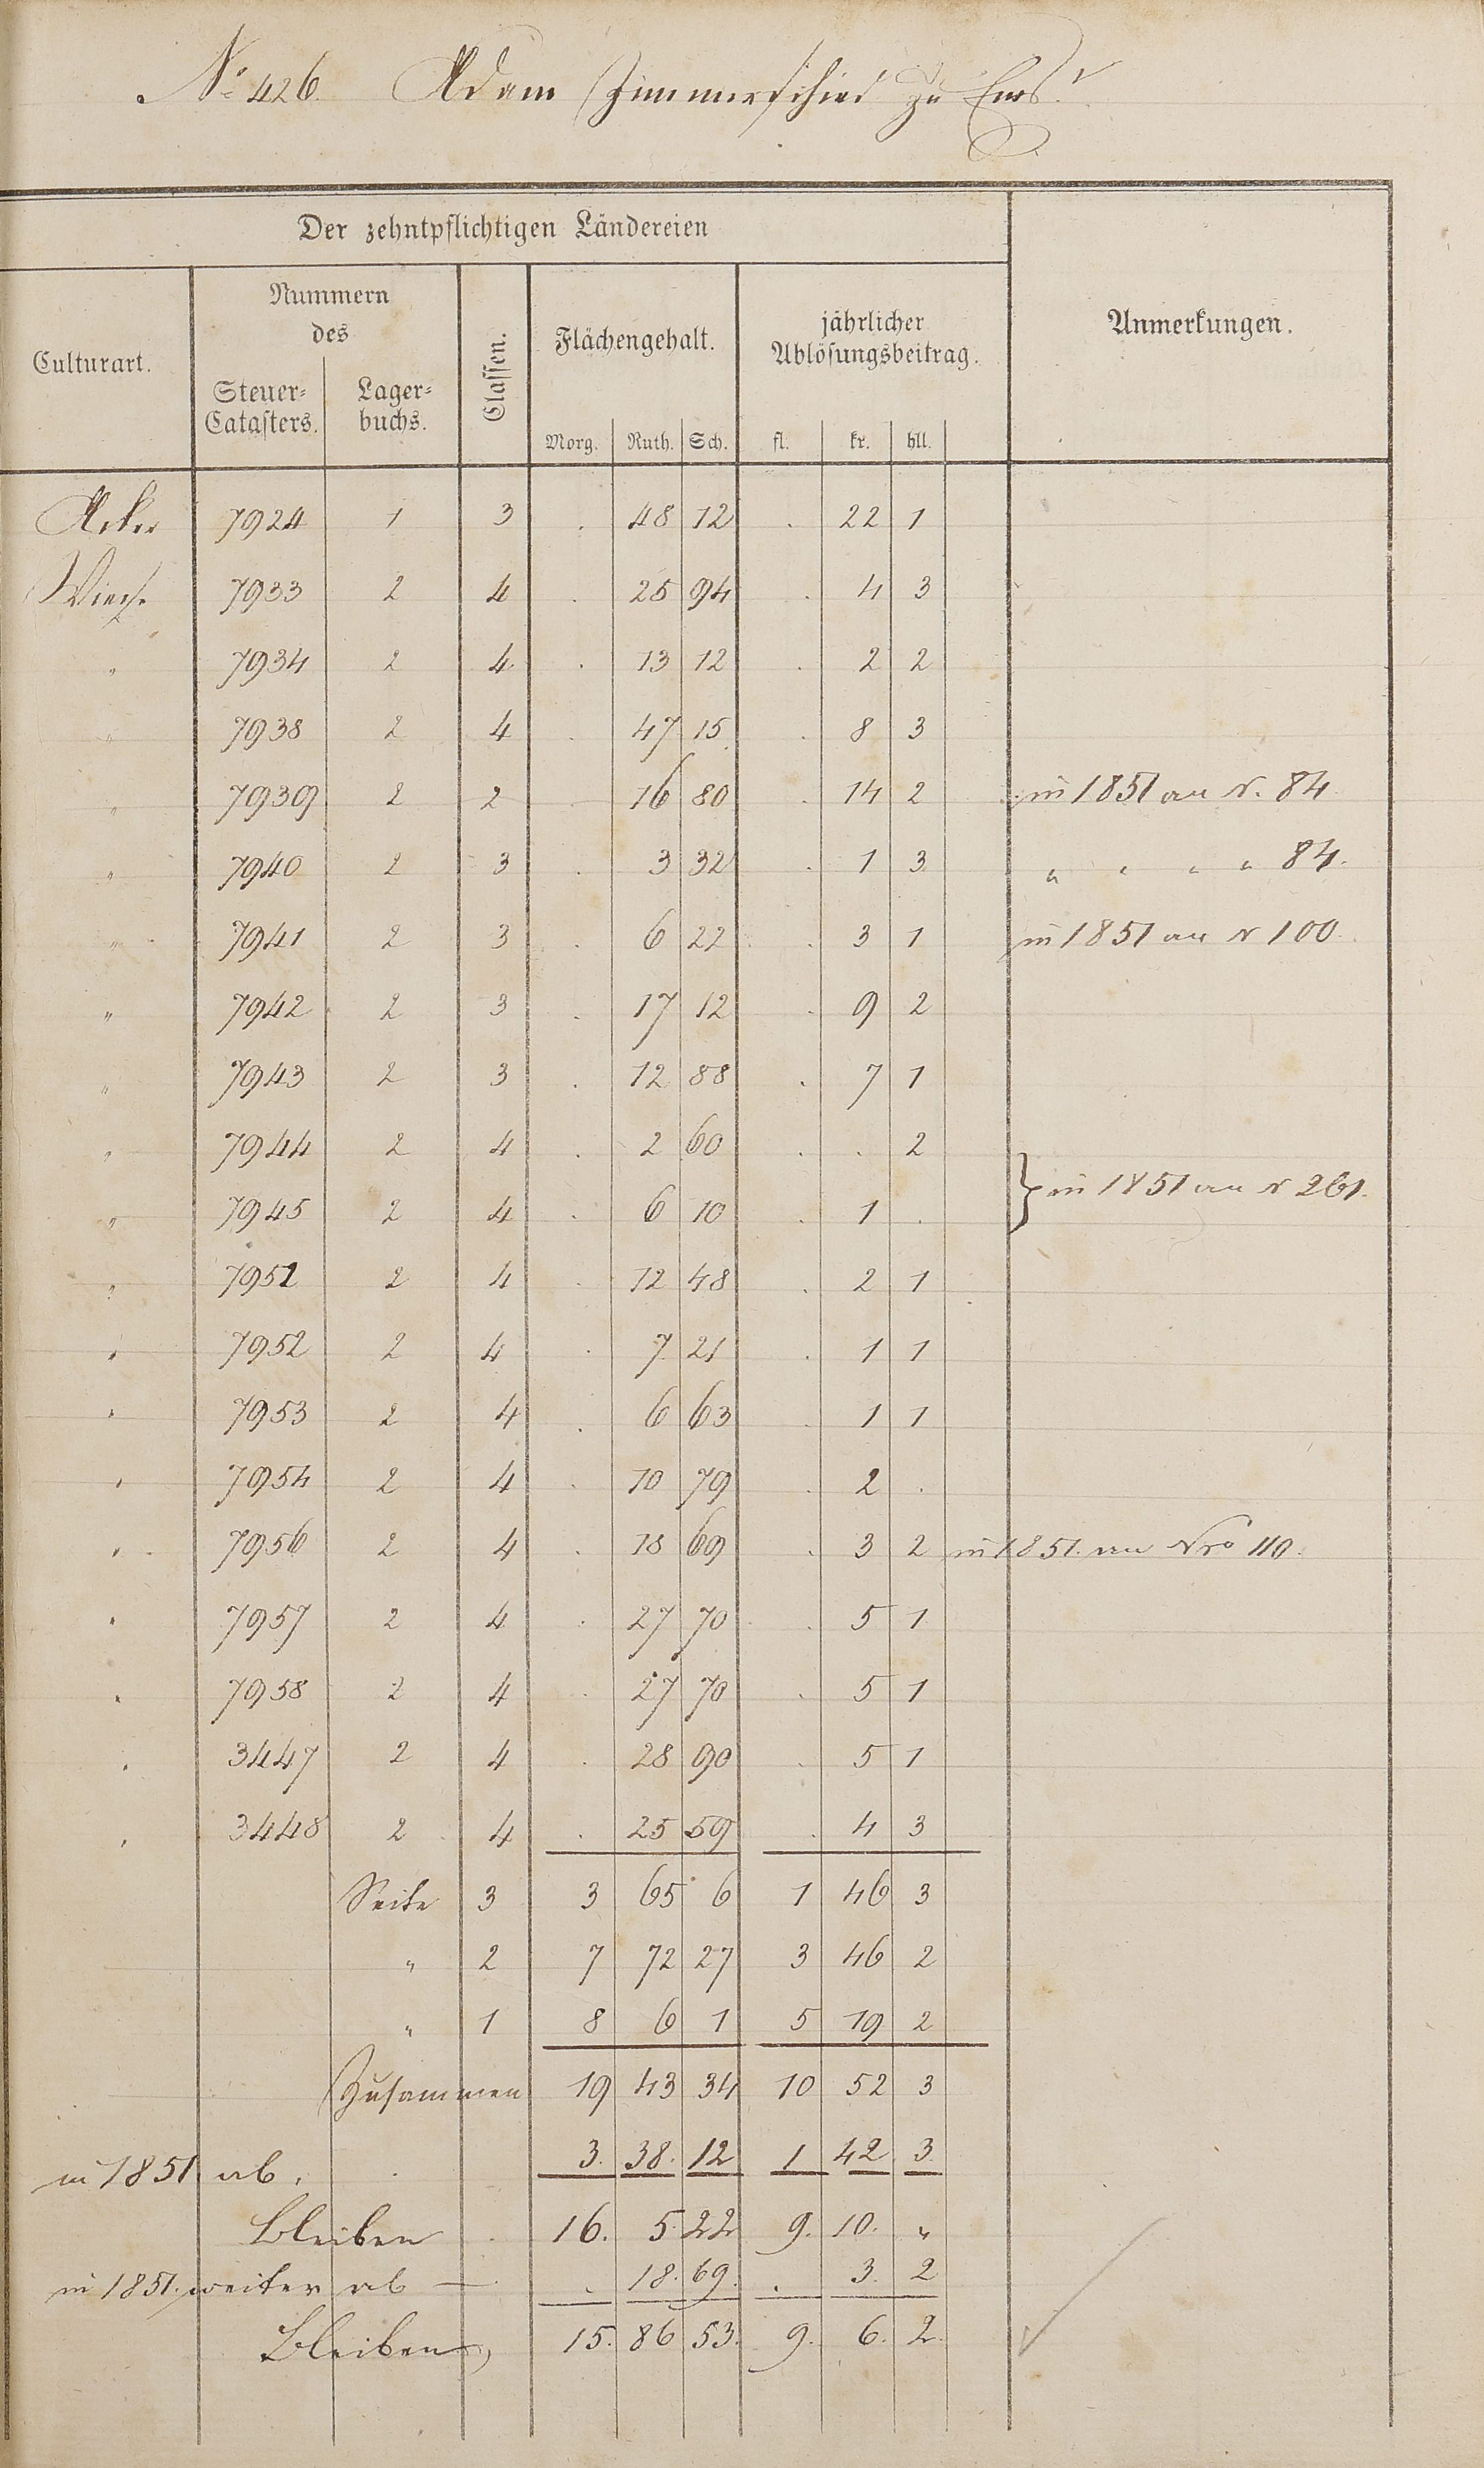 No 426. Adam Zimmerschied zu Ems.
Der zehntpflichtigen Ländereien
Culturart. Nummern des Steuer-Catasters. Lager-buchs. Classen. Flächengehalt. Morg. Ruth. Sch. jährlicher Ablösungsbeitrag. fl. kr. hll. Anmerkungen.
Acker 7924 1 3 . 48 12 . 22 1
Wiese 7933 2 4 . 25 94 . 4 3
" 7934 2 4 . 13 12 . 2 2
" 7938 2 4 . 47 15 . 8 3
" 7939 2 2 16 80 . 14 2 in 1851 an N. 84
" 7940 2 3 . 3 32 . 1 3 " " " " 84.
" 7941 2 3 . 6 22 . 3 1 in 1851 an N 100
" 7942 2 3 . 17 12 . 9 2
" 7943 2 3 . 12 88 . 7 1
" 7944 2 4 . 2 60 . . 2
} in 1851 an N 261.
" 7945 2 4 . 6 10 . 1 .
" 7951 2 4 . 12 48 . 2 1
" 7952 2 4 . 7 21 . 1 1
" 7953 2 4 . 6 63 . 1 1
" 7954 2 4 . 10 79 . 2 .
" 7956 2 4 . 18 69 . 3 2 in 1851. an Nro 110.
" 7957 2 4 . 27 70 . 5 1
" 7958 2 4 . 27 70 . 5 1
" 3447 2 4 . 28 90 . 5 1
" 3448 2 4 . 25 59 . 4 3
Seite 3 3 65 6 1 46 3
" 2 7 72 27 3 46 2
" 1 8 6 1 5 19 2
Zusammen 19 43 34 10 52 3
in 1851 ab. . 3. 38. 12 1 42 3.
Bleiben . 16. 5 22 9. 10. "
in 1851. weiter ab — . 18. 69. . 3. 2
Bleiben, 15. 86 53. 9. 6. 2.